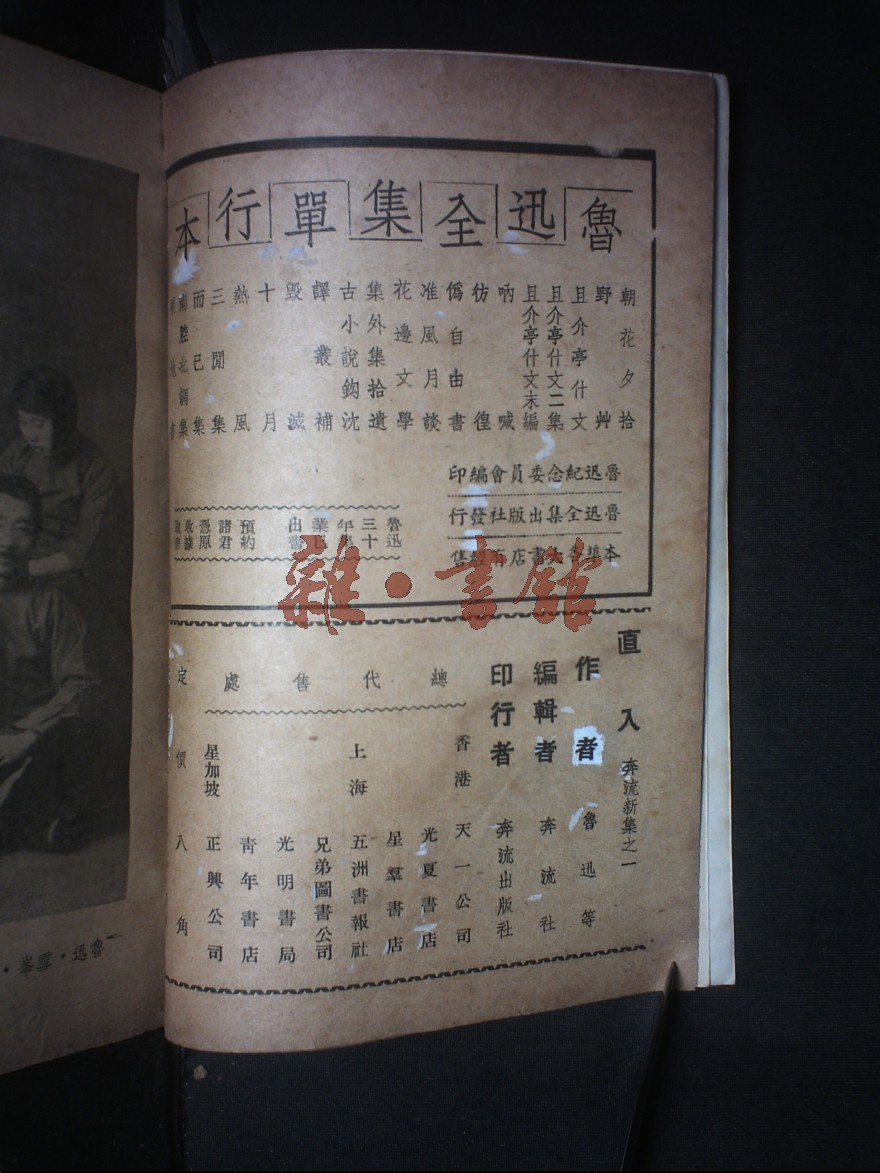 魯迅全集單行本
朝花夕拾
野艸
且介亭什文
且介亭什文二集
且介亭什文末編
吶喊
彷徨
偽自由書
准風月談
花邊文學
集外集拾遺
古小說鈎沈
譯叢補
毀滅
十月
熱風
三閒集
而已集
南腔北調集
魯迅紀念委員會編印
魯迅全集出版社發行
本埠各大書店有經售
魯迅
三十
年集
業已
出書
預約
諸君
憑原
收據
取書
雜·書館
直入 奔流新集之一
作者 魯迅等
編輯者 奔流社
印行者 奔流出版社
總代售處
香港 天一公司
光夏書店
星羣書店
上海 五洲書報社
兄弟圖書公司
光明書局
青年書店
星加坡 正興公司
定價八角
魯迅·雪峯·